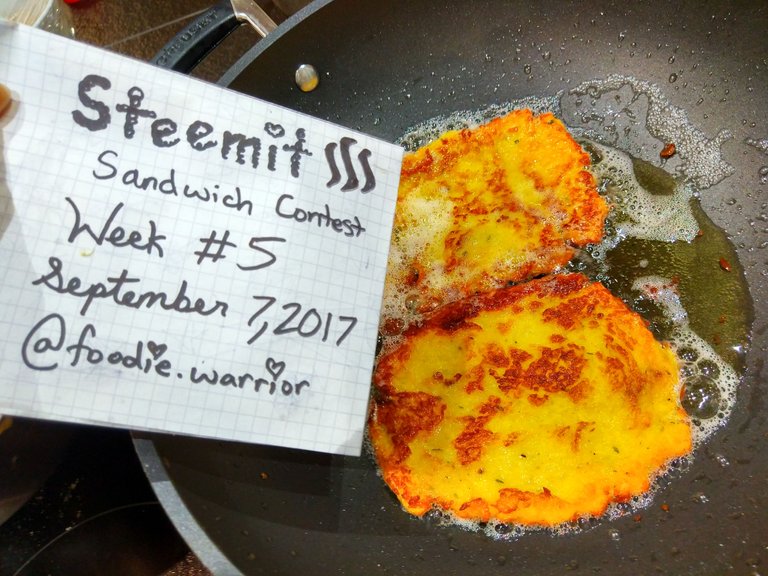 Steemit
Sandwich Contest
Week #5
September 7, 2017
@foodie.warrior